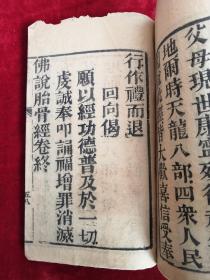 父母現世康寧
地爾時天龍八部四衆人民
大歡喜信受奉
行作禮而退
回向偈
願以經功德普及於一切
虔誠奉叩誦福增罪消滅
佛說胎骨經卷終